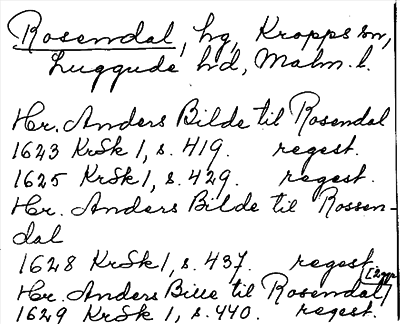 Rosendal, hg, Kropps sn,
Luggude hd, Malm. l.
Hr. Anders Bilde til Rosendal
1623 KrSk 1, s. 419. regest.
1625 KrSk 1, s. 429. regest.
Hr. Anders Bilde til Rossen-
dal
1628 KrSk 1, s. 437. regest.
Hr. Anders Bille te Rosendal
1629 KrSk 1, s. 440. regest.